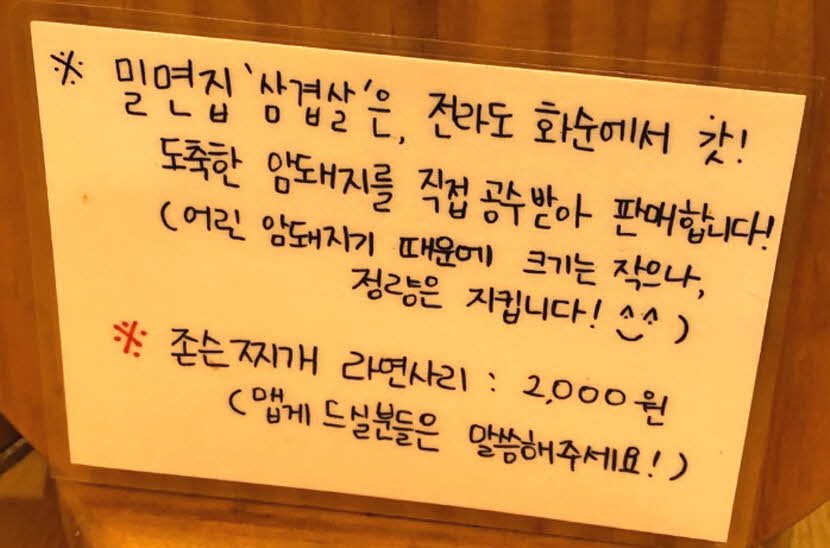 ※ 밀면집 '삼겹살'은, 전라도 화순에서 갓!
도축한 암돼지를 직접 공수받아 판매합니다!
(어린 암돼지기 때문에 크기는 작으나,
정량은 지킵니다! ^‿^)
※ 존슨찌개 라면사리 : 2,000원
(맵게 드실분들은 말씀해주세요!)